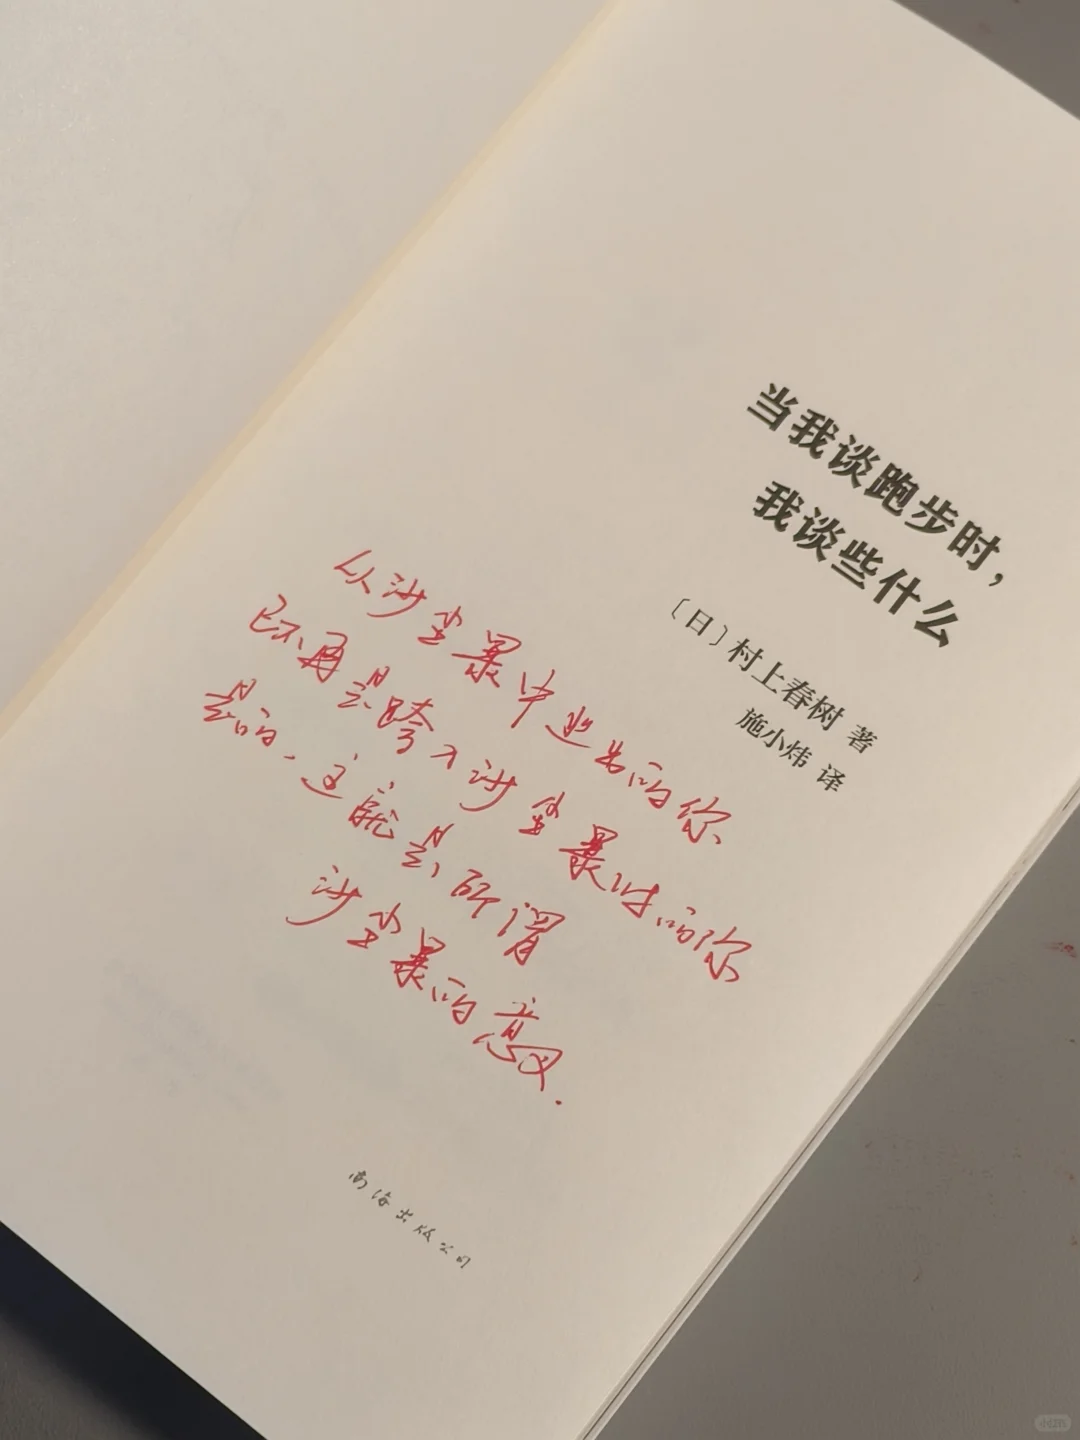 当我谈跑步时，
我谈些什么
〔日〕村上春树 著
施小炜 译
从沙尘暴中逃出的你
已不再是跨入沙尘暴时的你
是的、这就是所谓
沙尘暴的意义.
南海出版公司
小红书